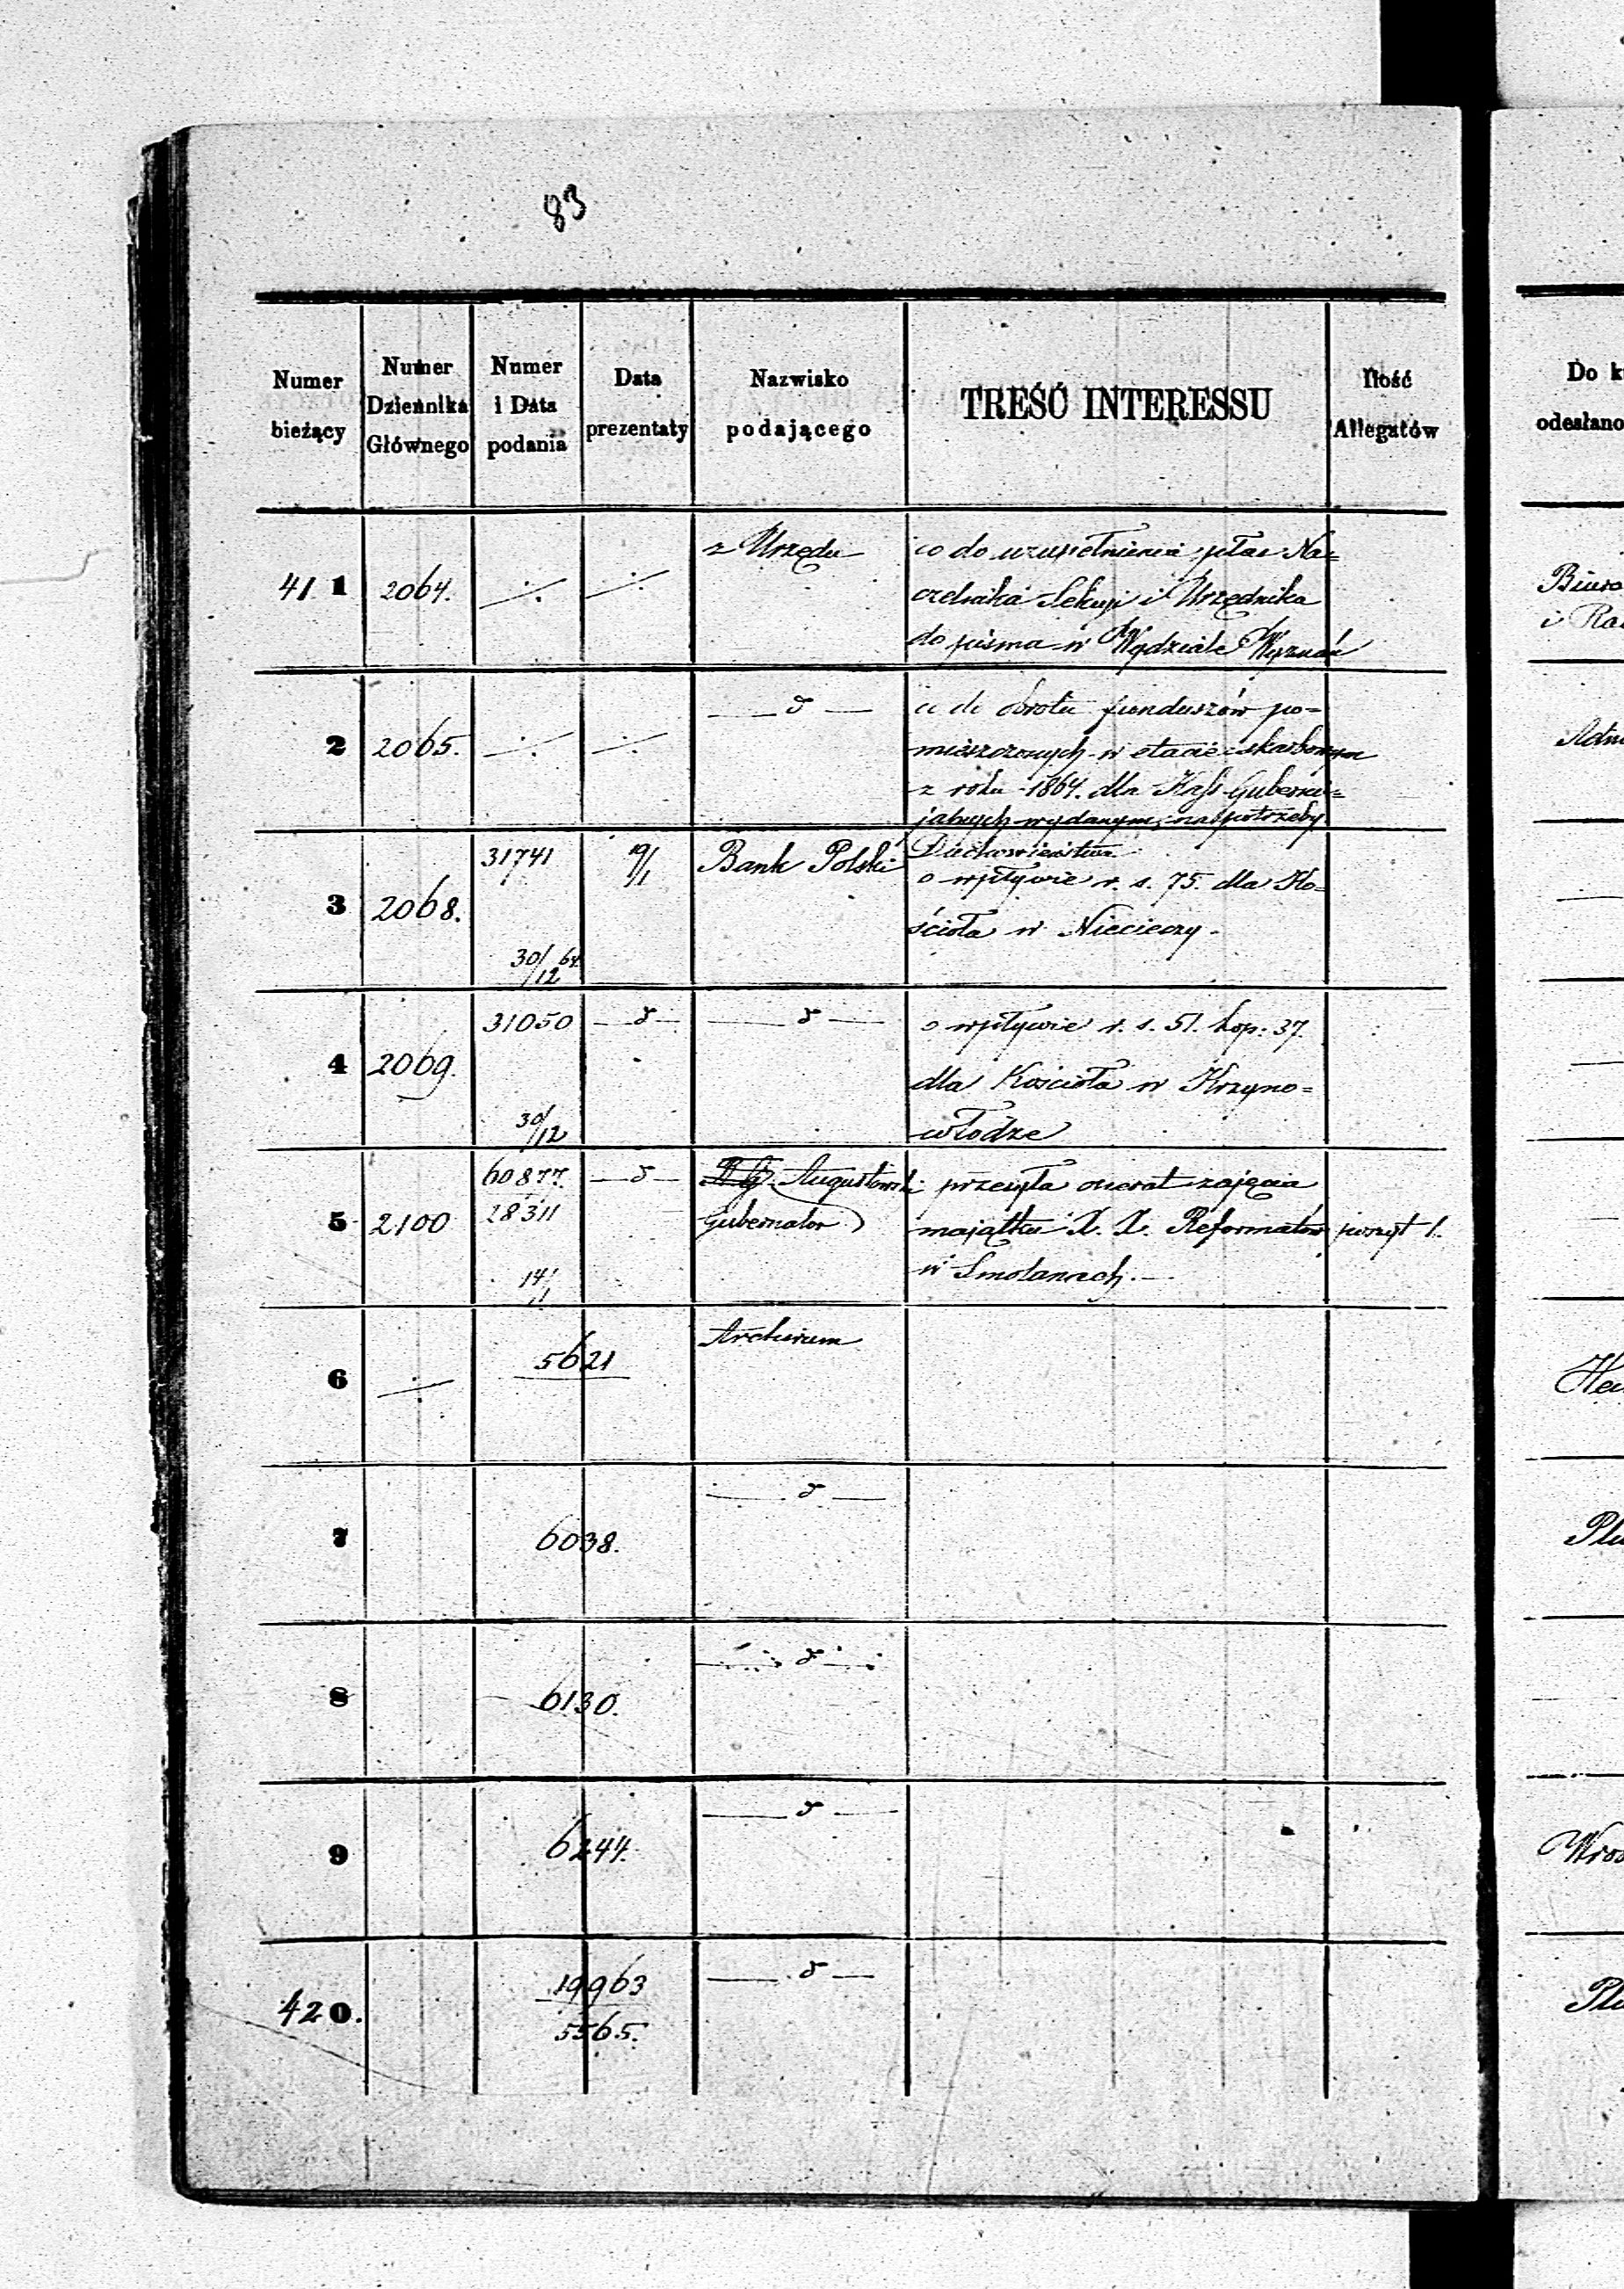 83
Numer bieżący
Numer Dziennika Głównego
Numer i Data podania
Data prezentaty
Nazwisko podającego
TREŚĆ INTERESSU
Ilość Allegatów
Do k
odesłano
411
2064.
z Urzędu
co do uzupełnienia płac Na=
czelnika Sekcyi i Urzędnika
do pisma w Wydziale Wyznań
Biuro
i Ra
2
2065.
co do obrotu funduszów po=
mieszczonych w etacie skarbowym
z roku 1864. dla Kass Guberni=
jalnych wydanym, na potrzeby
Duchowieństwa.
Adm
3
2068.
31741
30/12 64
19/1
Bank Polski
o wpływie r. s. 75. dla Ko=
ścioła w Niecieczy.
4
2069.
31050
30/12
o wpływie r. s. 51. kop. 37.
dla Kościoła w Krzyno=
włodze
5
2100
60877.
28311
14/1
Augustowski
Gubernator
przesyła operat zajęcia
majątku X. X. Reformatów
w Smolanach.
poszyt 1.
6
5621
Archiwum
7
6038.
8
6130.
9
6244.
420.
19963
5565.